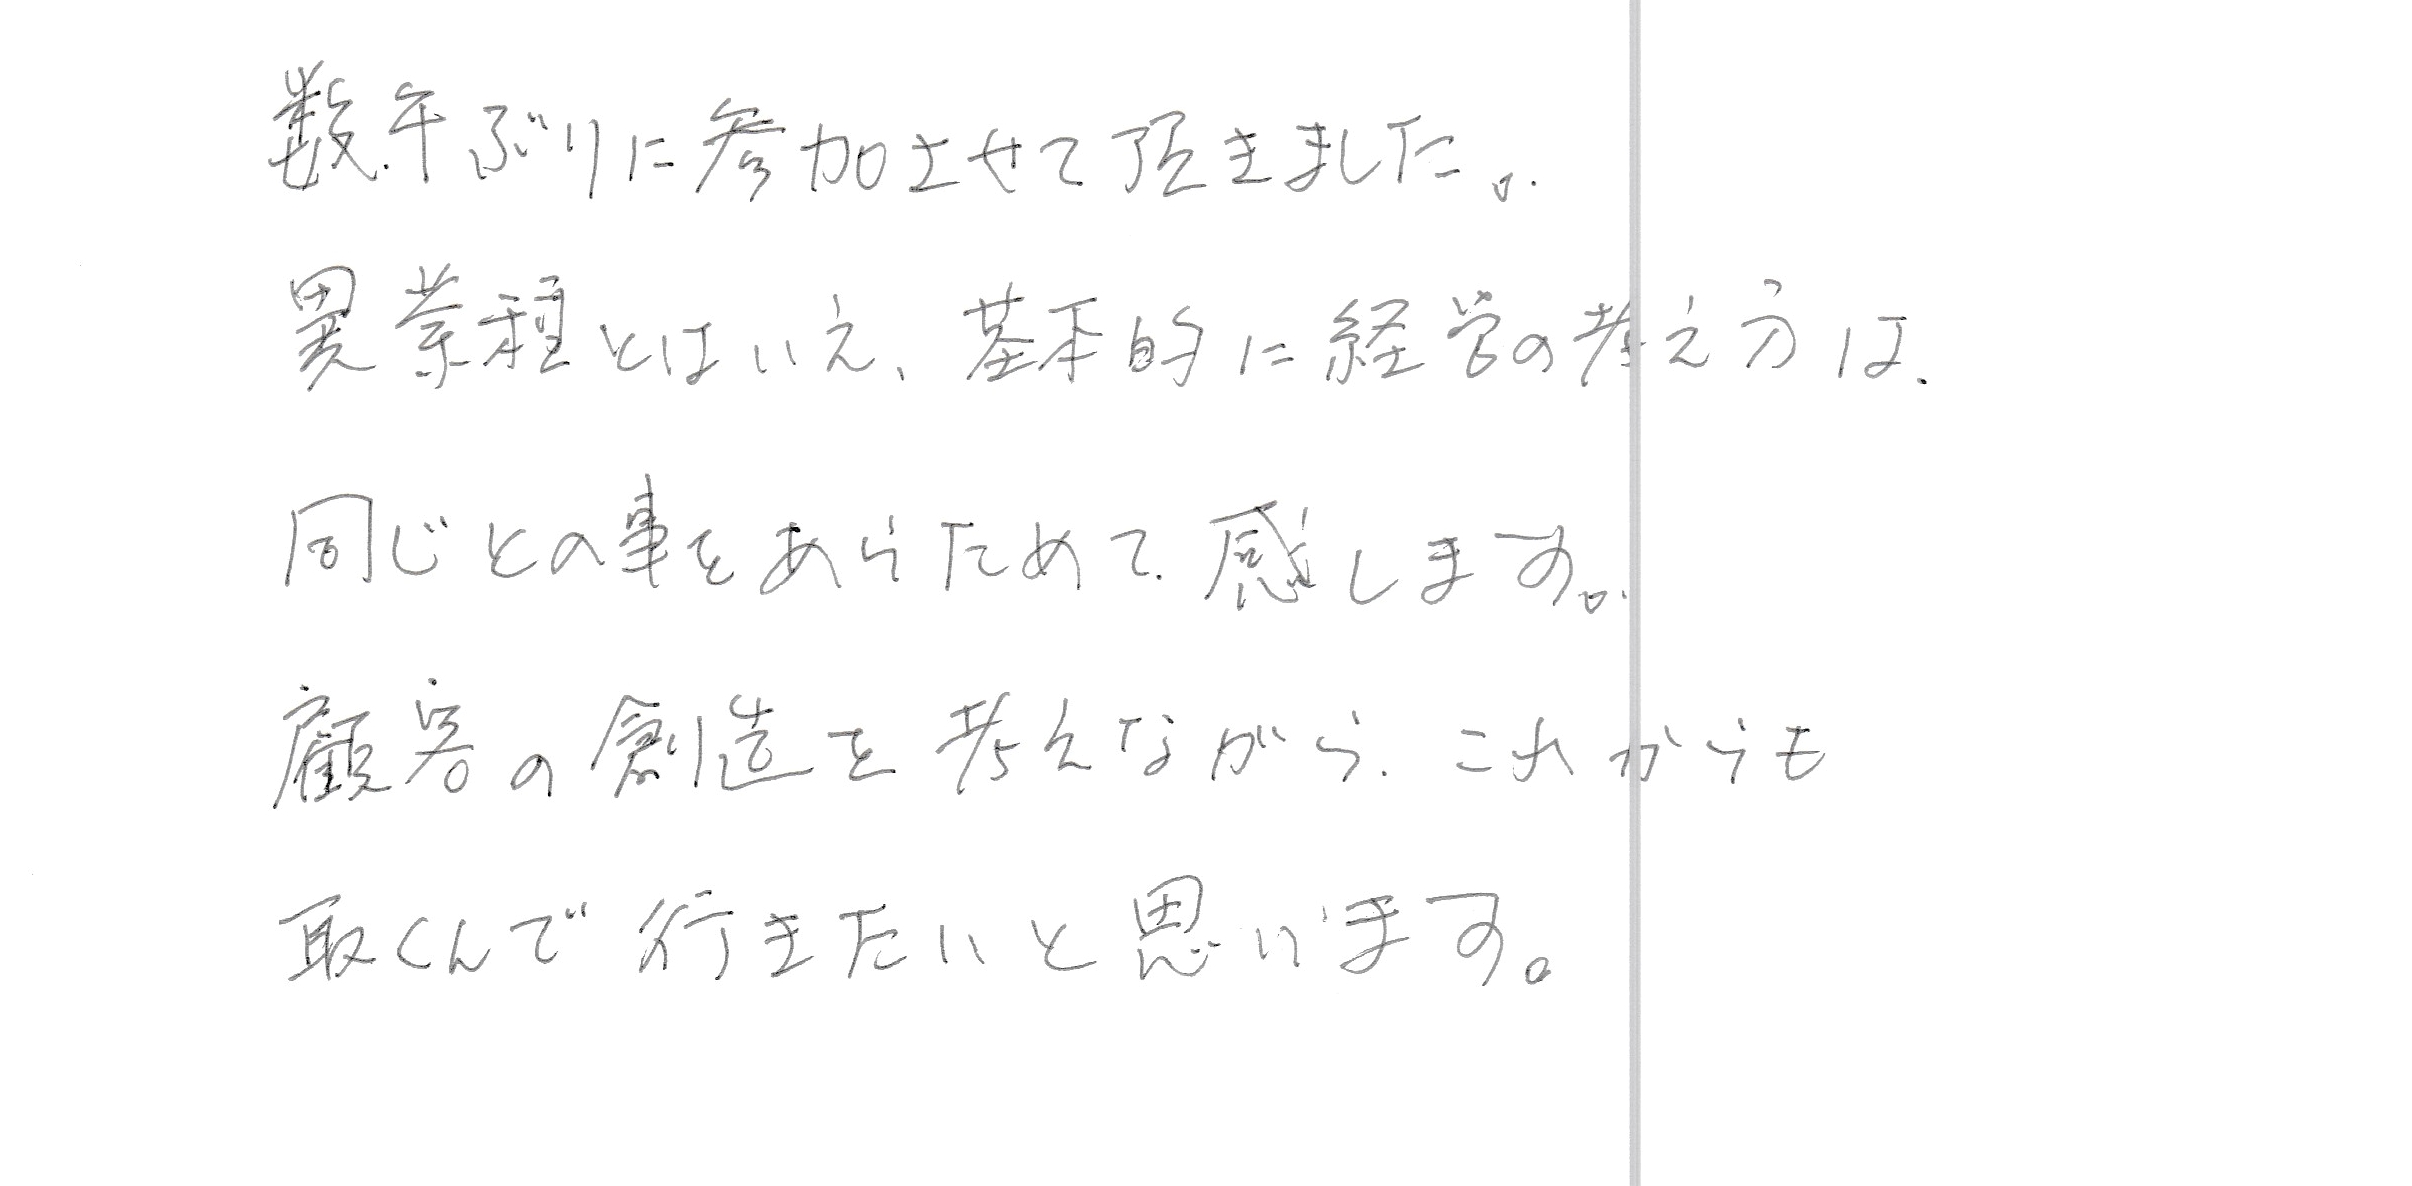 数年ぶりに参加させて頂きました。
異業種とはいえ、基本的に経営の考え方は、
同じとの事をあらためて感します。
顧客の創造を考えながら、これからも
取くんで行きたいと思います。